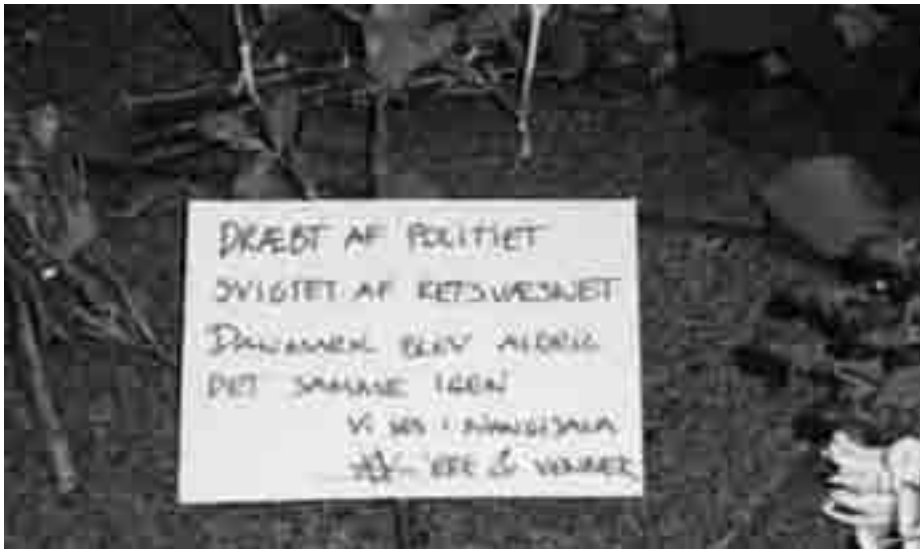 DRÆBT AF POLITIET
SVIGTET AF RETSVÆSNET
DANMARK BLEV ALDRIG
DET SAMME IGEN
VI SES I NANGIJALA
VENNER